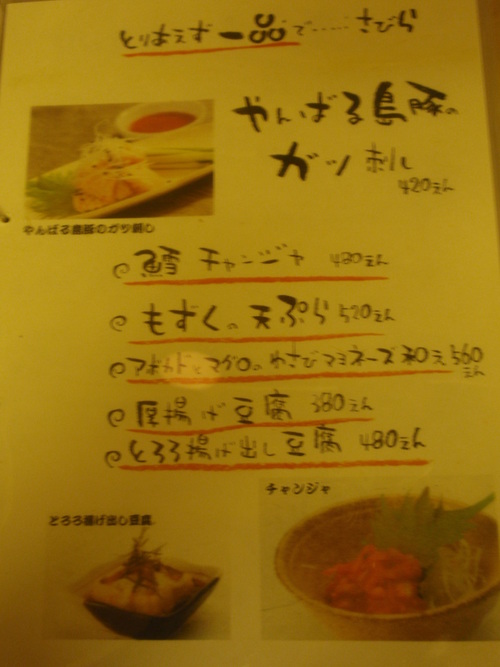 とりあえず一品で……さびら
やんばる島豚の
ガツ刺し
420えん
やんばる島豚のガツ刺し
鱈チャンジャ 480えん
もずくの天ぷら 520えん
アボカドとマグロのわさびマヨネーズ和え 560えん
厚揚げ豆腐 380えん
とろろ揚げ出し豆腐 480えん
チャンジャ
とろろ揚げ出し豆腐